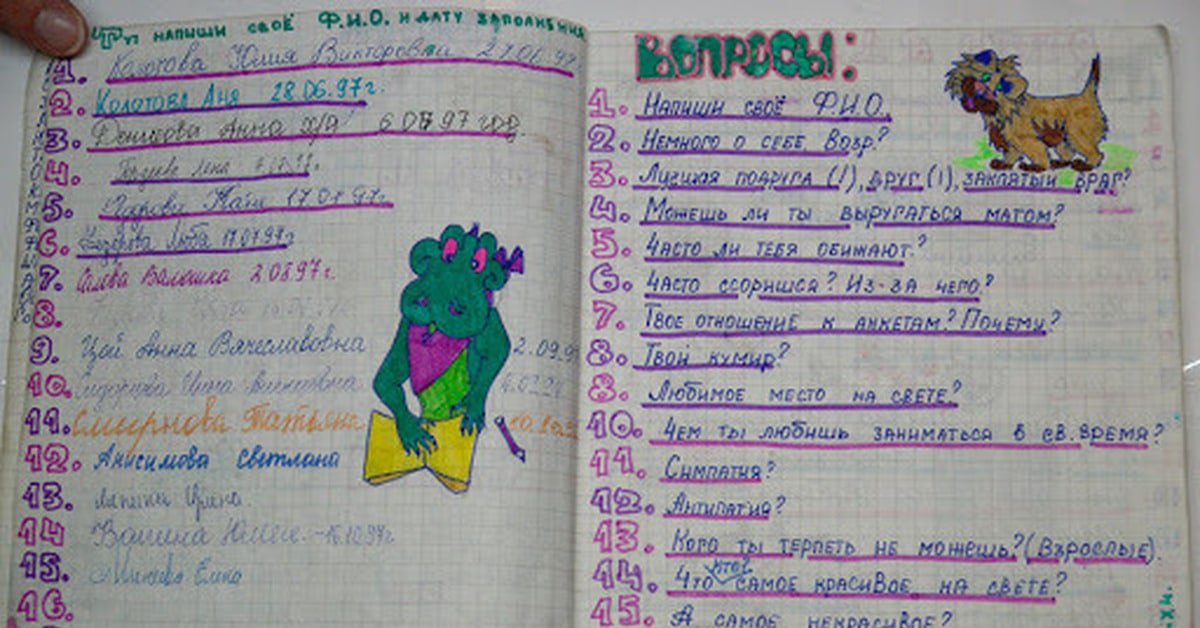 Тут напиши своё Ф.И.О. и дату заполнения
1. Колотова Юлия Викторовна 27.06.97
2. Колотова Аня 28.06.97г.
3. Анна 97 год
4. Лена
5. Катя 17.07.97г.
6. Люба 17.07.97г.
7. Валюшка 2.08.97г.
8.
9. Цой Анна Вячеславовна 2.09.9
10.
11. Смирнова Татьяна 10.10.9
12. Анисимова Светлана
13. Ирина.
14 Ванина Юлия - 16.10.97г.
15. Елена
16.
ВОПРОСЫ:
1. Напиши своё Ф.И.О.
2. Немного о себе. Возр?
3. Лучшая подруга (!), друг (!), заклятый враг?
4. Можешь ли ты выругаться матом?
5. Часто ли тебя обижают?
6. Часто ссоришся? Из-за чего?
7. Твое отношение к анкетам? Почему?
8. Твой кумир?
8. Любимое место на свете?
10. Чем ты любишь заниматься в св. время?
11. Симпатия?
12. Антипатия?
13. Кого ты терпеть не можешь? (Взрослые).
14. Что кто? самое красивое на свете?
15. А самое некрасивое?